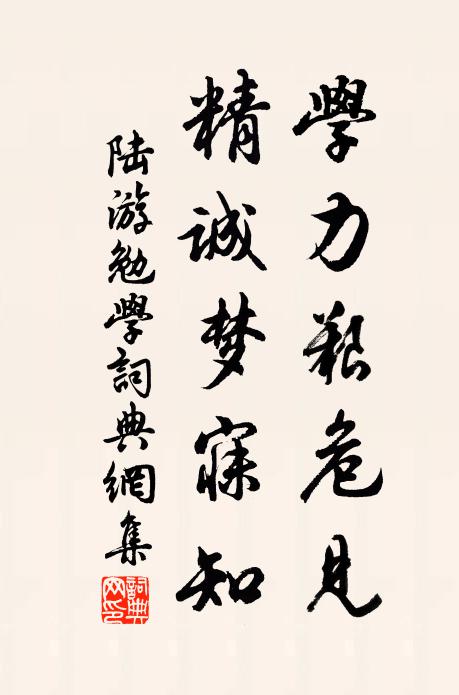 學力艱危見
精誠梦寐知
陆游勉學詞典網集
詞典网印